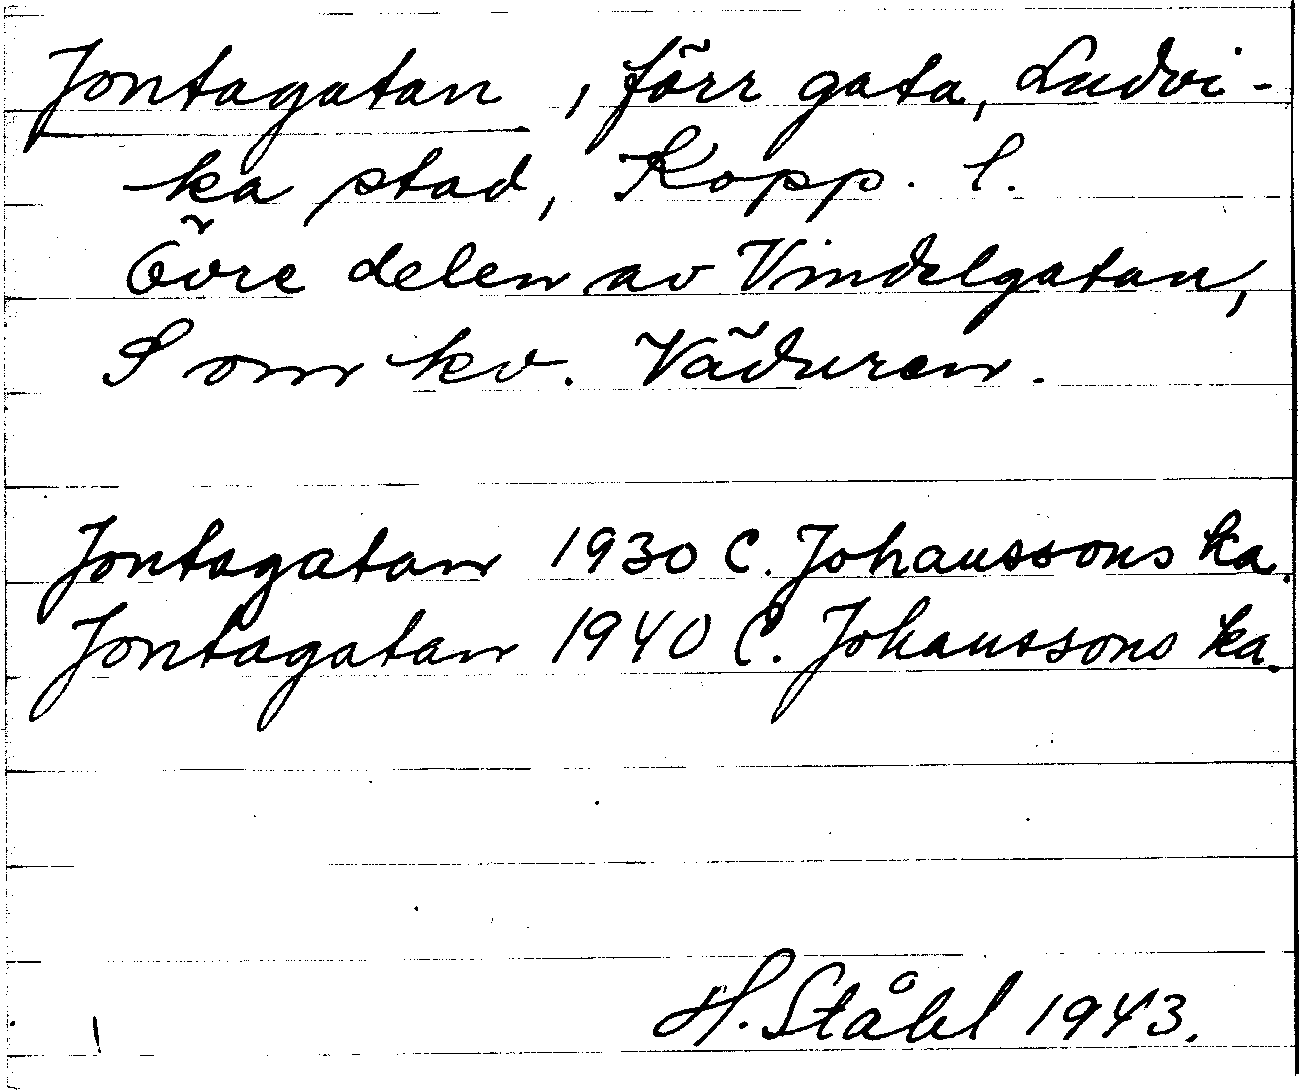 Jontagatan, förr gata, Ludvi-
ka stad, Kopp. l.
Övre delen av Vindelgatan,
S om kv. Väduren.
Jontagatan 1930 C. Johanssons ka.
Jontagatan 1940 C. Johanssons ka.
H. Ståhl 1943.